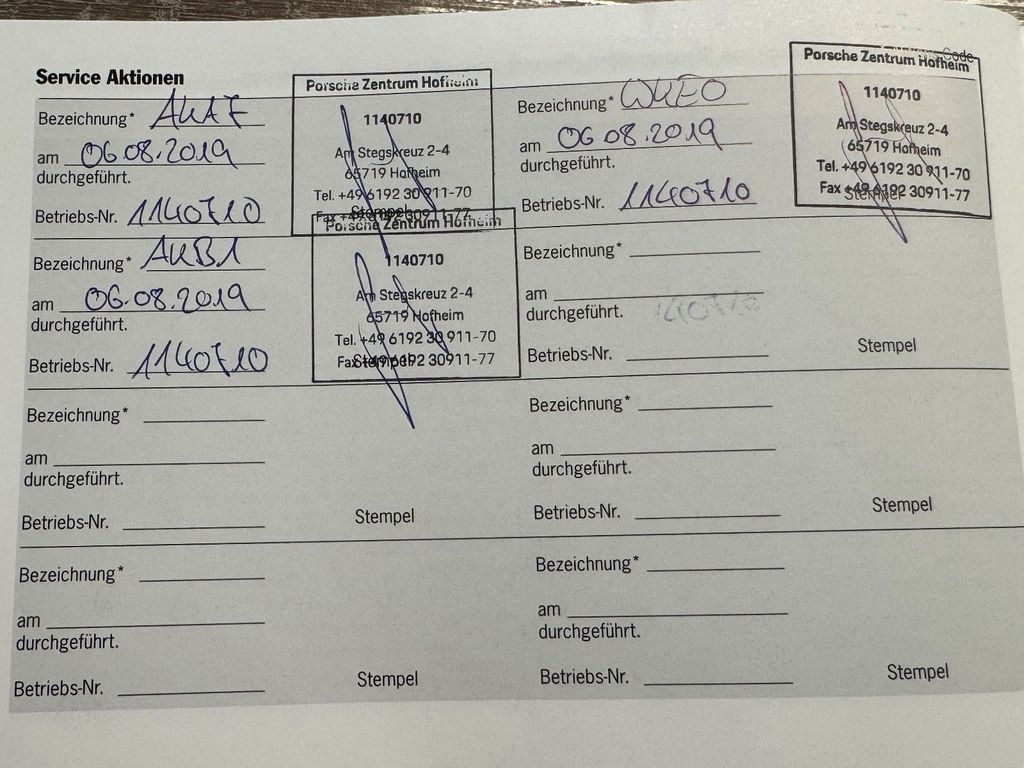 Service Aktionen
Bezeichnung* AKAF
am 06.08.2019
durchgeführt.
Betriebs-Nr. 1140710
Porsche Zentrum Hofheim
1140710
Am Stegskreuz 2-4
65719 Hofheim
Tel. +49 6192 30 911-70
Fax +49 6192 30911-77
Stempel
Bezeichnung* WKE0
am 06.08.2019
durchgeführt.
Betriebs-Nr. 1140710
Code
Porsche Zentrum Hofheim
1140710
Am Stegskreuz 2-4
65719 Hofheim
Tel. +49 6192 30 911-70
Fax +49 6192 30911-77
Stempel
Bezeichnung* AKB1
am 06.08.2019
durchgeführt.
Betriebs-Nr. 1140710
Porsche Zentrum Hofheim
1140710
Am Stegskreuz 2-4
65719 Hofheim
Tel. +49 6192 30 911-70
Fax +49 6192 30911-77
Stempel
Bezeichnung*
am
durchgeführt.
Betriebs-Nr.
Stempel
Bezeichnung*
am
durchgeführt.
Betriebs-Nr.
Stempel
Bezeichnung*
am
durchgeführt.
Betriebs-Nr.
Stempel
Bezeichnung*
am
durchgeführt.
Betriebs-Nr.
Stempel
Bezeichnung*
am
durchgeführt.
Betriebs-Nr.
Stempel